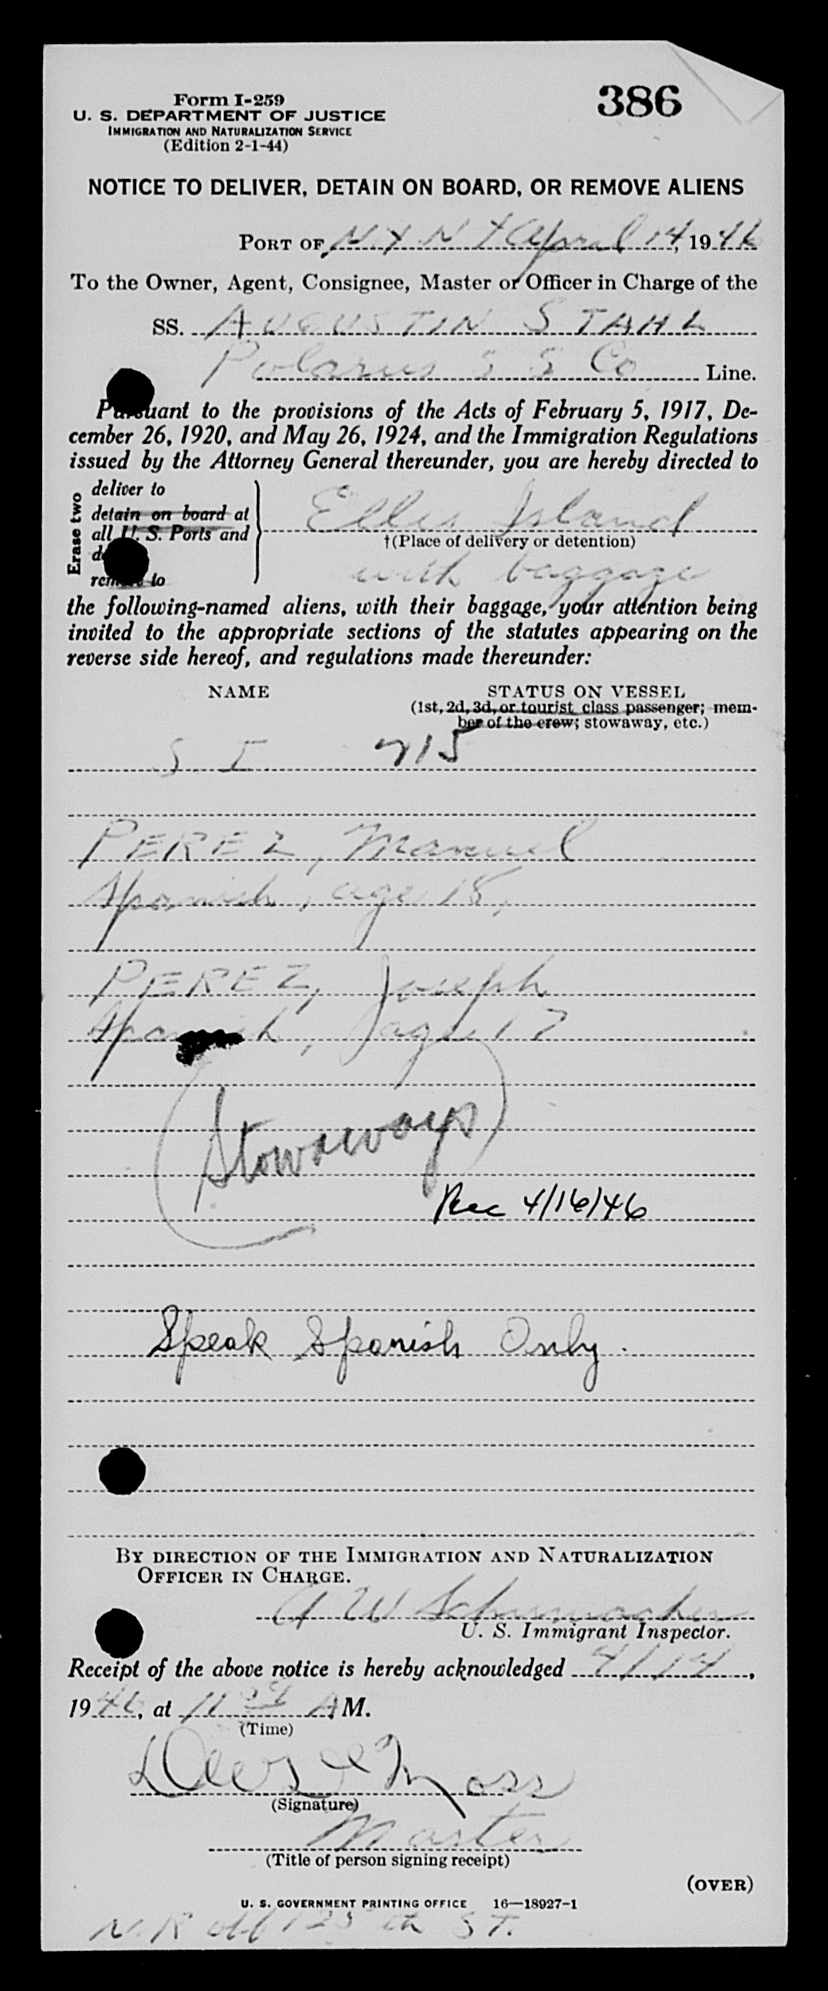 Form I-259
386
U. S. DEPARTMENT OF JUSTICE
IMMIGRATION AND NATURALIZATION SERVICE
(Edition 2-1-44)
NOTICE TO DELIVER, DETAIN ON BOARD, OR REMOVE ALIENS
PORT OF N Y N Y April 14, 1946
To the Owner, Agent, Consignee, Master or Officer in Charge of the
SS. AUGUSTIN STAHL
Polarus S S Co Line.
Pursuant to the provisions of the Acts of February 5, 1917, De-
cember 26, 1920, and May 26, 1924, and the Immigration Regulations
issued by the Attorney General thereunder, you are hereby directed to
Erase two
deliver to
detain on board at
all U. S. Ports and
remove to
Ellis Island
†(Place of delivery or detention)
with baggage
the following-named aliens, with their baggage, your attention being
invited to the appropriate sections of the statutes appearing on the
reverse side hereof, and regulations made thereunder:
NAME STATUS ON VESSEL
(1st, 2d, 3d, or tourist class passenger; mem-
ber of the crew; stowaway, etc.)
S I 715
PEREZ, Manuel
Spanish, age 18,
PEREZ, Joseph
Spanish, age 17
(Stowaways)
Rec 4/16/46
Speak Spanish Only.
BY DIRECTION OF THE IMMIGRATION AND NATURALIZATION
OFFICER IN CHARGE.
A W Schumacher
U. S. Immigrant Inspector.
Receipt of the above notice is hereby acknowledged 4/14,
1946, at 11 AM.
(Time)
Moss
(Signature)
Master
(Title of person signing receipt)
(OVER)
U. S. GOVERNMENT PRINTING OFFICE 16—18927-1
N.R off 125 th ST.